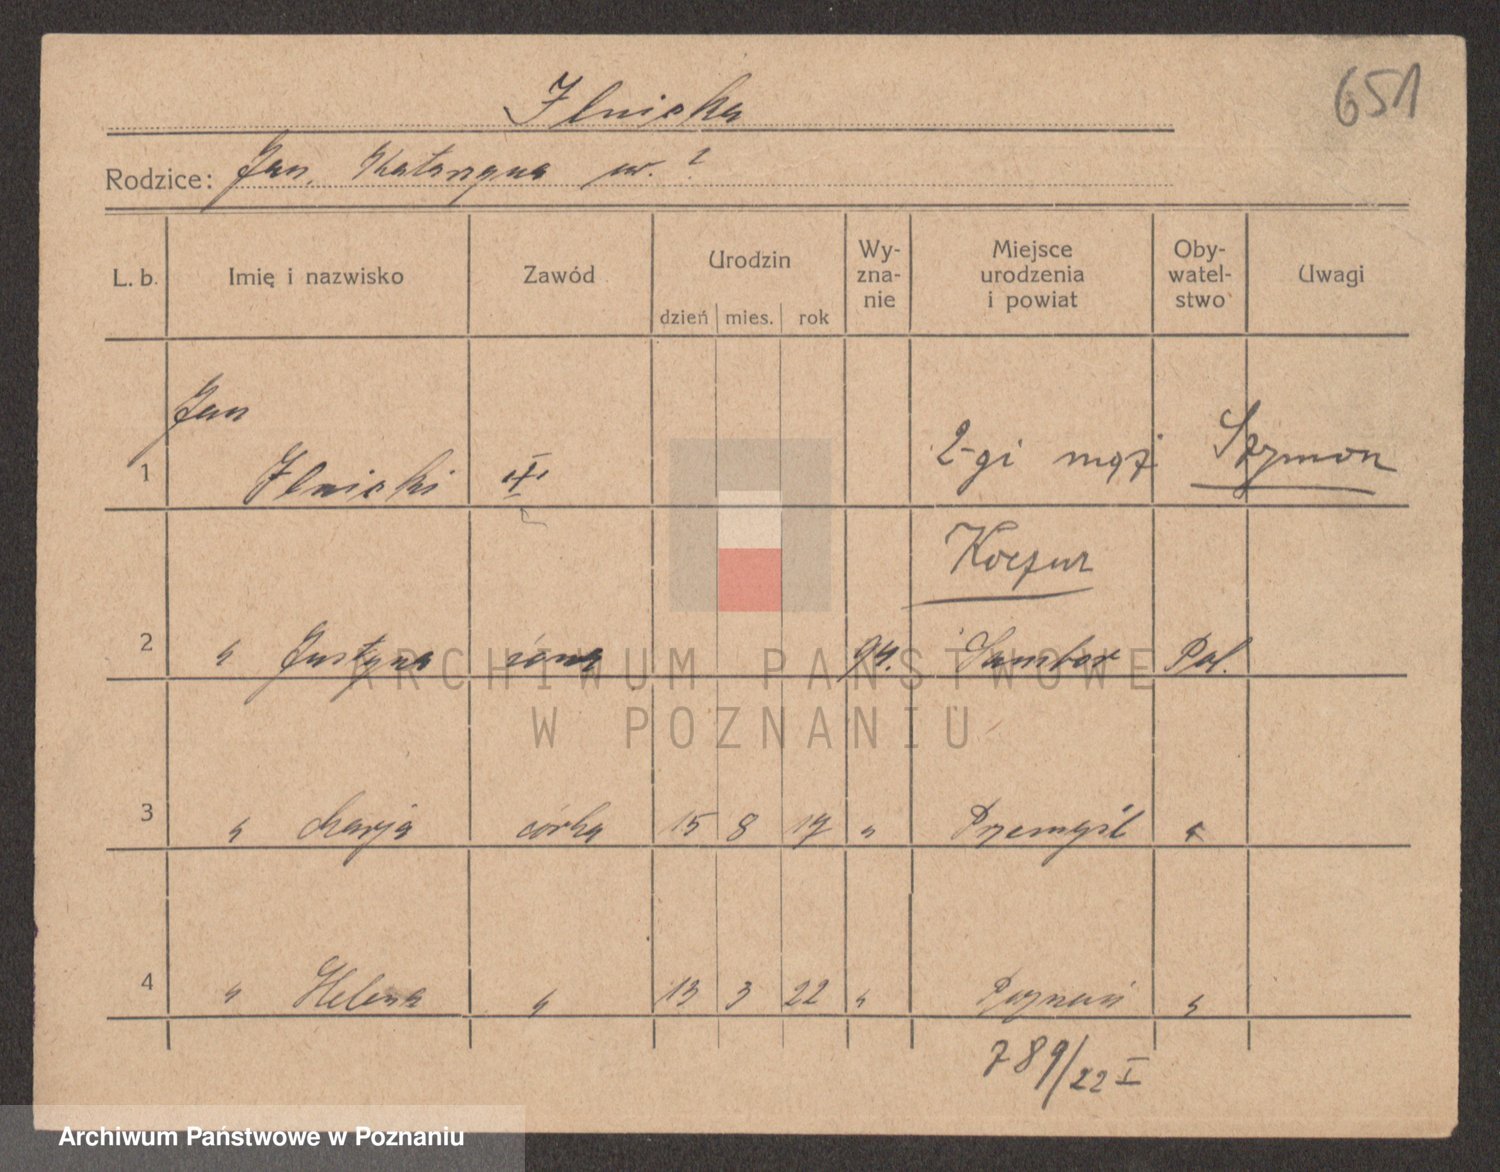 651
Ilnicka
Rodzice: Jan, Katarzyna ur. ?
L. b. Imię i nazwisko Zawód Urodzin dzień mies. rok Wy-zna-nie Miejsce urodzenia i powiat Oby-watel-stwo Uwagi
Jan
1 Ilnicki 2-gi mąż Szymon
Koczur
2 " Justyna żona Sambor Pol.
3 " Marja córka 15 8 19 " Przemyśl "
4 " Helena " 13 3 22 " Poznań "
789/22 I
ARCHIWUM PAŃSTWOWE
W POZNANIU
Archiwum Państwowe w Poznaniu